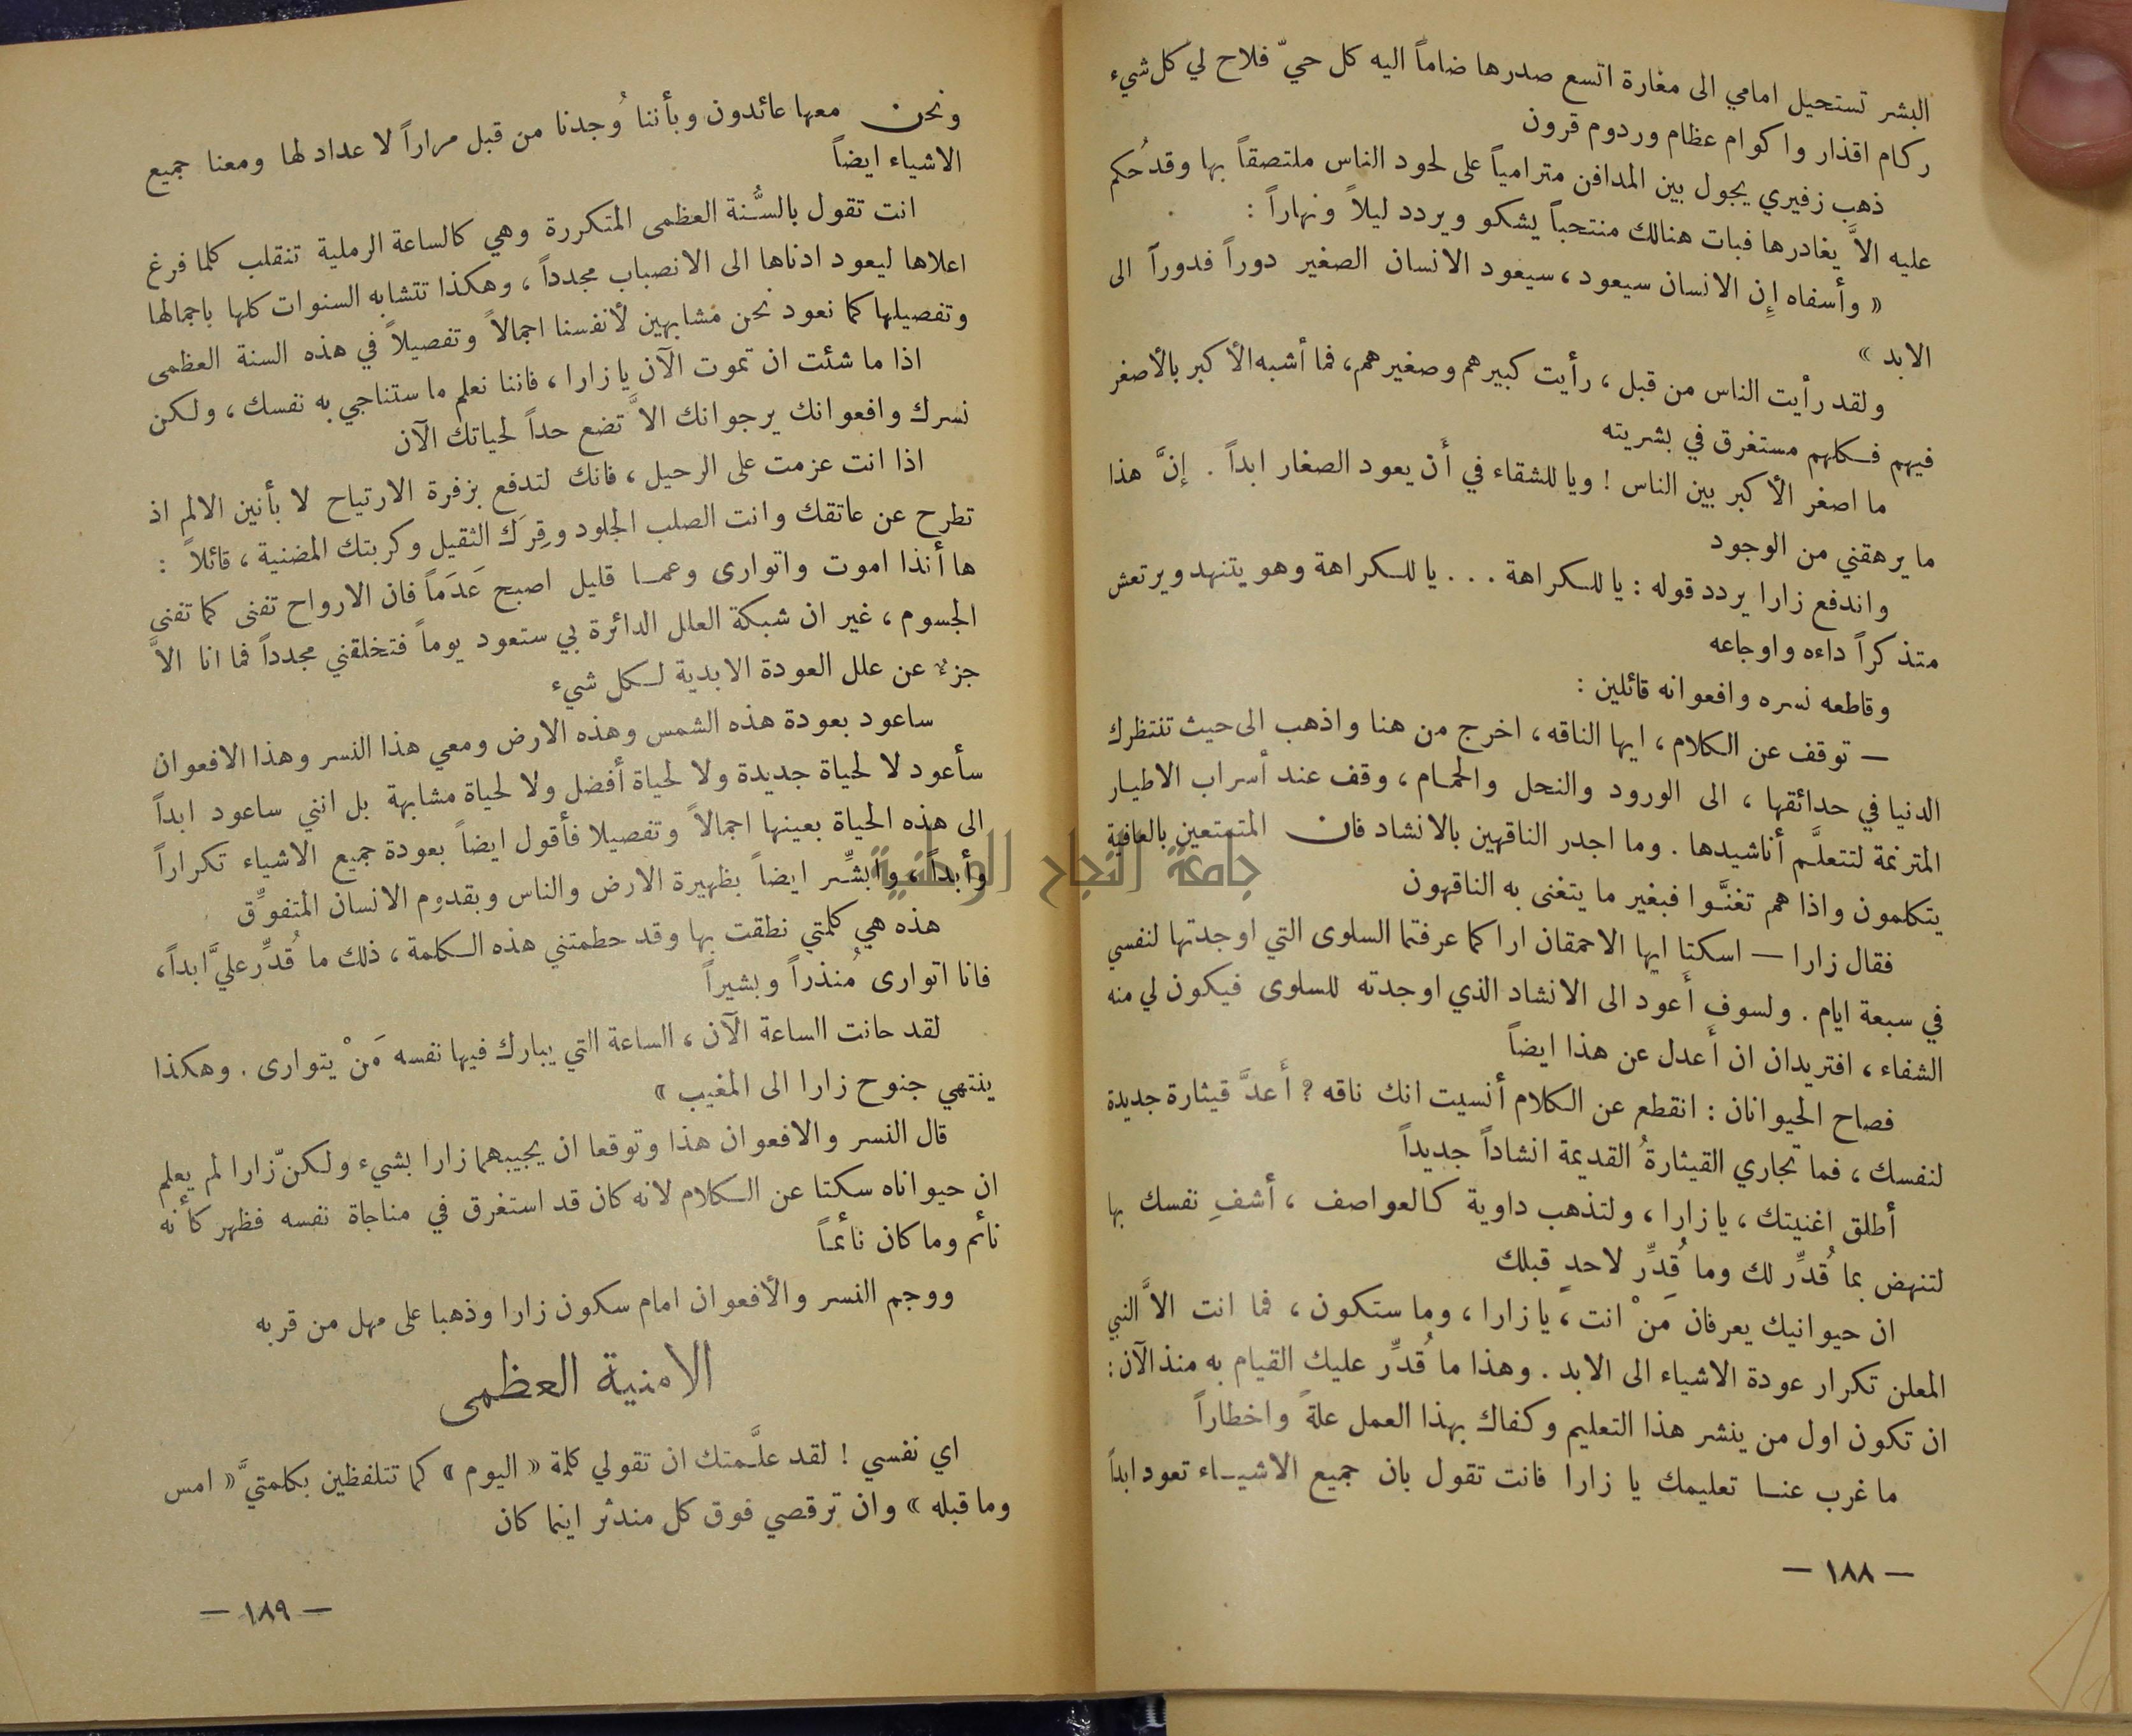 البشر تستحيل امامي الى مغارة اتسع صدرها ضاماً اليه كل حيّ فلاح لي كل شيء
ركام اقذار واكوام عظام وردوم قرون
ذهب زفيري يجول بين المدافن مترامياً على لحود الناس ملتصقاً بها وقد حُكم
عليه الاَّ يغادرها فبات هنالك منتحباً يشكو ويردد ليلاً ونهاراً :
« وأسفاه إِن الانسان سيعود ، سيعود الانسان الصغير دوراً فدوراً الى
الابد »
ولقد رأيت الناس من قبل ، رأيت كبيرهم وصغيرهم ، فما أشبه الأكبر بالأصغر
فيهم فكلهم مستغرق في بشريته
ما اصغر الأكبر بين الناس ! ويا للشقاء في أَن يعود الصغار ابداً . إنَّ هذا
ما يرهقني من الوجود
واندفع زارا يردد قوله : يا للكراهة . . . يا للكراهة وهو يتنهد ويرتعش
متذكراً داءه واوجاعه
وقاطعه نسره وافعوانه قائلين :
— توقف عن الكلام ، ايها الناقه ، اخرج من هنا واذهب الى حيث تنتظرك
الدنيا في حدائقها ، الى الورود والنحل والحمام ، وقف عند أسراب الاطيار
المترنمة لتتعلَّم أناشيدها . وما اجدر الناقهين بالانشاد فان المتمتعين بالعافية
جامعة النجاح الوطنية
يتكلمون واذا هم تغنَّوا فبغير ما يتغنى به الناقهون
فقال زارا — اسكتا ايها الاحمقان اراكما عرفتما السلوى التي اوجدتها لنفسي
في سبعة ايام . ولسوف أَعود الى الانشاد الذي اوجدته للسلوى فيكون لي منه
الشفاء ، افتريدان ان أَعدل عن هذا ايضاً
فصاح الحيوانان : انقطع عن الكلام أنسيت انك ناقه ? أَعدَّ قيثارة جديدة
لنفسك ، فما تجاري القيثارةُ القديمة انشاداً جديداً
أطلق اغنيتك ، يا زارا ، ولتذهب داوية كالعواصف ، أشفِ نفسك بها
لتنهض بما قُدِّر لك وما قُدِّر لاحدٍ قبلك
ان حيوانيك يعرفان مَنْ انت ، يا زارا ، وما ستكون ، فما انت الاَّ النبي
المعلن تكرار عودة الاشياء الى الابد . وهذا ما قُدِّر عليك القيام به منذ الآن :
ان تكون اول من ينشر هذا التعليم وكفاك بهذا العمل علةً واخطاراً
ما غرب عنا تعليمك يا زارا فانت تقول بان جميع الاشياء تعود ابداً
— ١٨٨ —
ونحن معها عائدون وبأننا وُجدنا من قبل مراراً لا عداد لها ومعنا جميع
الاشياء ايضاً
انت تقول بالسُّنة العظمى المتكررة وهي كالساعة الرملية تنقلب كلما فرغ
اعلاها ليعود ادناها الى الانصباب مجدداً ، وهكذا تتشابه السنوات كلها باجمالها
وتفصيلها كما نعود نحن مشابهين لأنفسنا اجمالاً وتفصيلاً في هذه السنة العظمى
اذا ما شئت ان تموت الآن يا زارا ، فاننا نعلم ما ستناجي به نفسك ، ولكن
نسرك وافعوانك يرجوانك الاَّ تضع حداً لحياتك الآن
اذا انت عزمت على الرحيل ، فانك لتدفع بزفرة الارتياح لا بأنين الالم اذ
تطرح عن عاتقك وانت الصلب الجلود وقِرَك الثقيل وكربتك المضنية ، قائلاً :
ها أنذا اموت واتوارى وعما قليل اصبح عَدَماً فان الارواح تفنى كما تفنى
الجسوم ، غير ان شبكة العلل الدائرة بي ستعود يوماً فتخلقني مجدداً فما انا الاَّ
جزء عن علل العودة الابدية لكل شيء
ساعود بعودة هذه الشمس وهذه الارض ومعي هذا النسر وهذا الافعوان
سأعود لا لحياة جديدة ولا لحياة أفضل ولا لحياة مشابهة بل انني ساعود ابداً
الى هذه الحياة بعينها اجمالاً وتفصيلا فأقول ايضاً بعودة جميع الاشياء تكراراً
وأبداً ، وابشِّر ايضاً بظهيرة الارض والناس وبقدوم الانسان المتفوِّق
هذه هي كلمتي نطقت بها وقد حطمتني هذه الكلمة ، ذلك ما قُدِّر عليَّ ابداً ،
فانا اتوارى مُنذراً وبشيراً
لقد حانت الساعة الآن ، الساعة التي يبارك فيها نفسه مَنْ يتوارى . وهكذا
ينتهي جنوح زارا الى المغيب »
قال النسر والافعوان هذا وتوقعا ان يجيبهما زارا بشيء ولكنّ زارا لم يعلم
ان حيواناه سكتا عن الكلام لانه كان قد استغرق في مناجاة نفسه فظهر كأنه
نائم وما كان نائماً
ووجم النسر والأفعوان امام سكون زارا وذهبا على مهل من قربه
الامنية العظمى
اي نفسي ! لقد علَّمتك ان تقولي كلمة « اليوم » كما تتلفظين بكلمتيَّ « امس
وما قبله » وان ترقصي فوق كل مندثر اينما كان
— ١٨٩ —